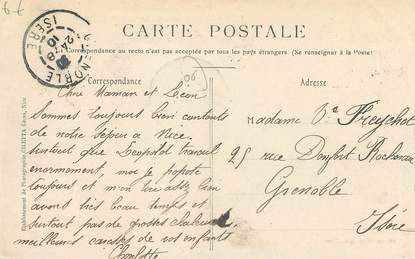 CARTE POSTALE
La Correspondance au recto n'est pas acceptée par tous les pays étrangers. (Se renseigner à la Poste)
Correspondance
Adresse
GRENOBLE
ISÈRE
Chère Maman et Léon
Sommes toujours bien contents
de notre séjour à Nice.
surtout que Léopold travail
énormément, moi je popote
toujours et m'en
avons très beau temps et
surtout pas de grosses chaleurs
meilleures caresses de vos enfants
Charlotte
Madame Ve Freychet
25 rue Denfert Rochereau
Grenoble
Isère
Etablissement de Photographie, GILETTA Edons, Nice